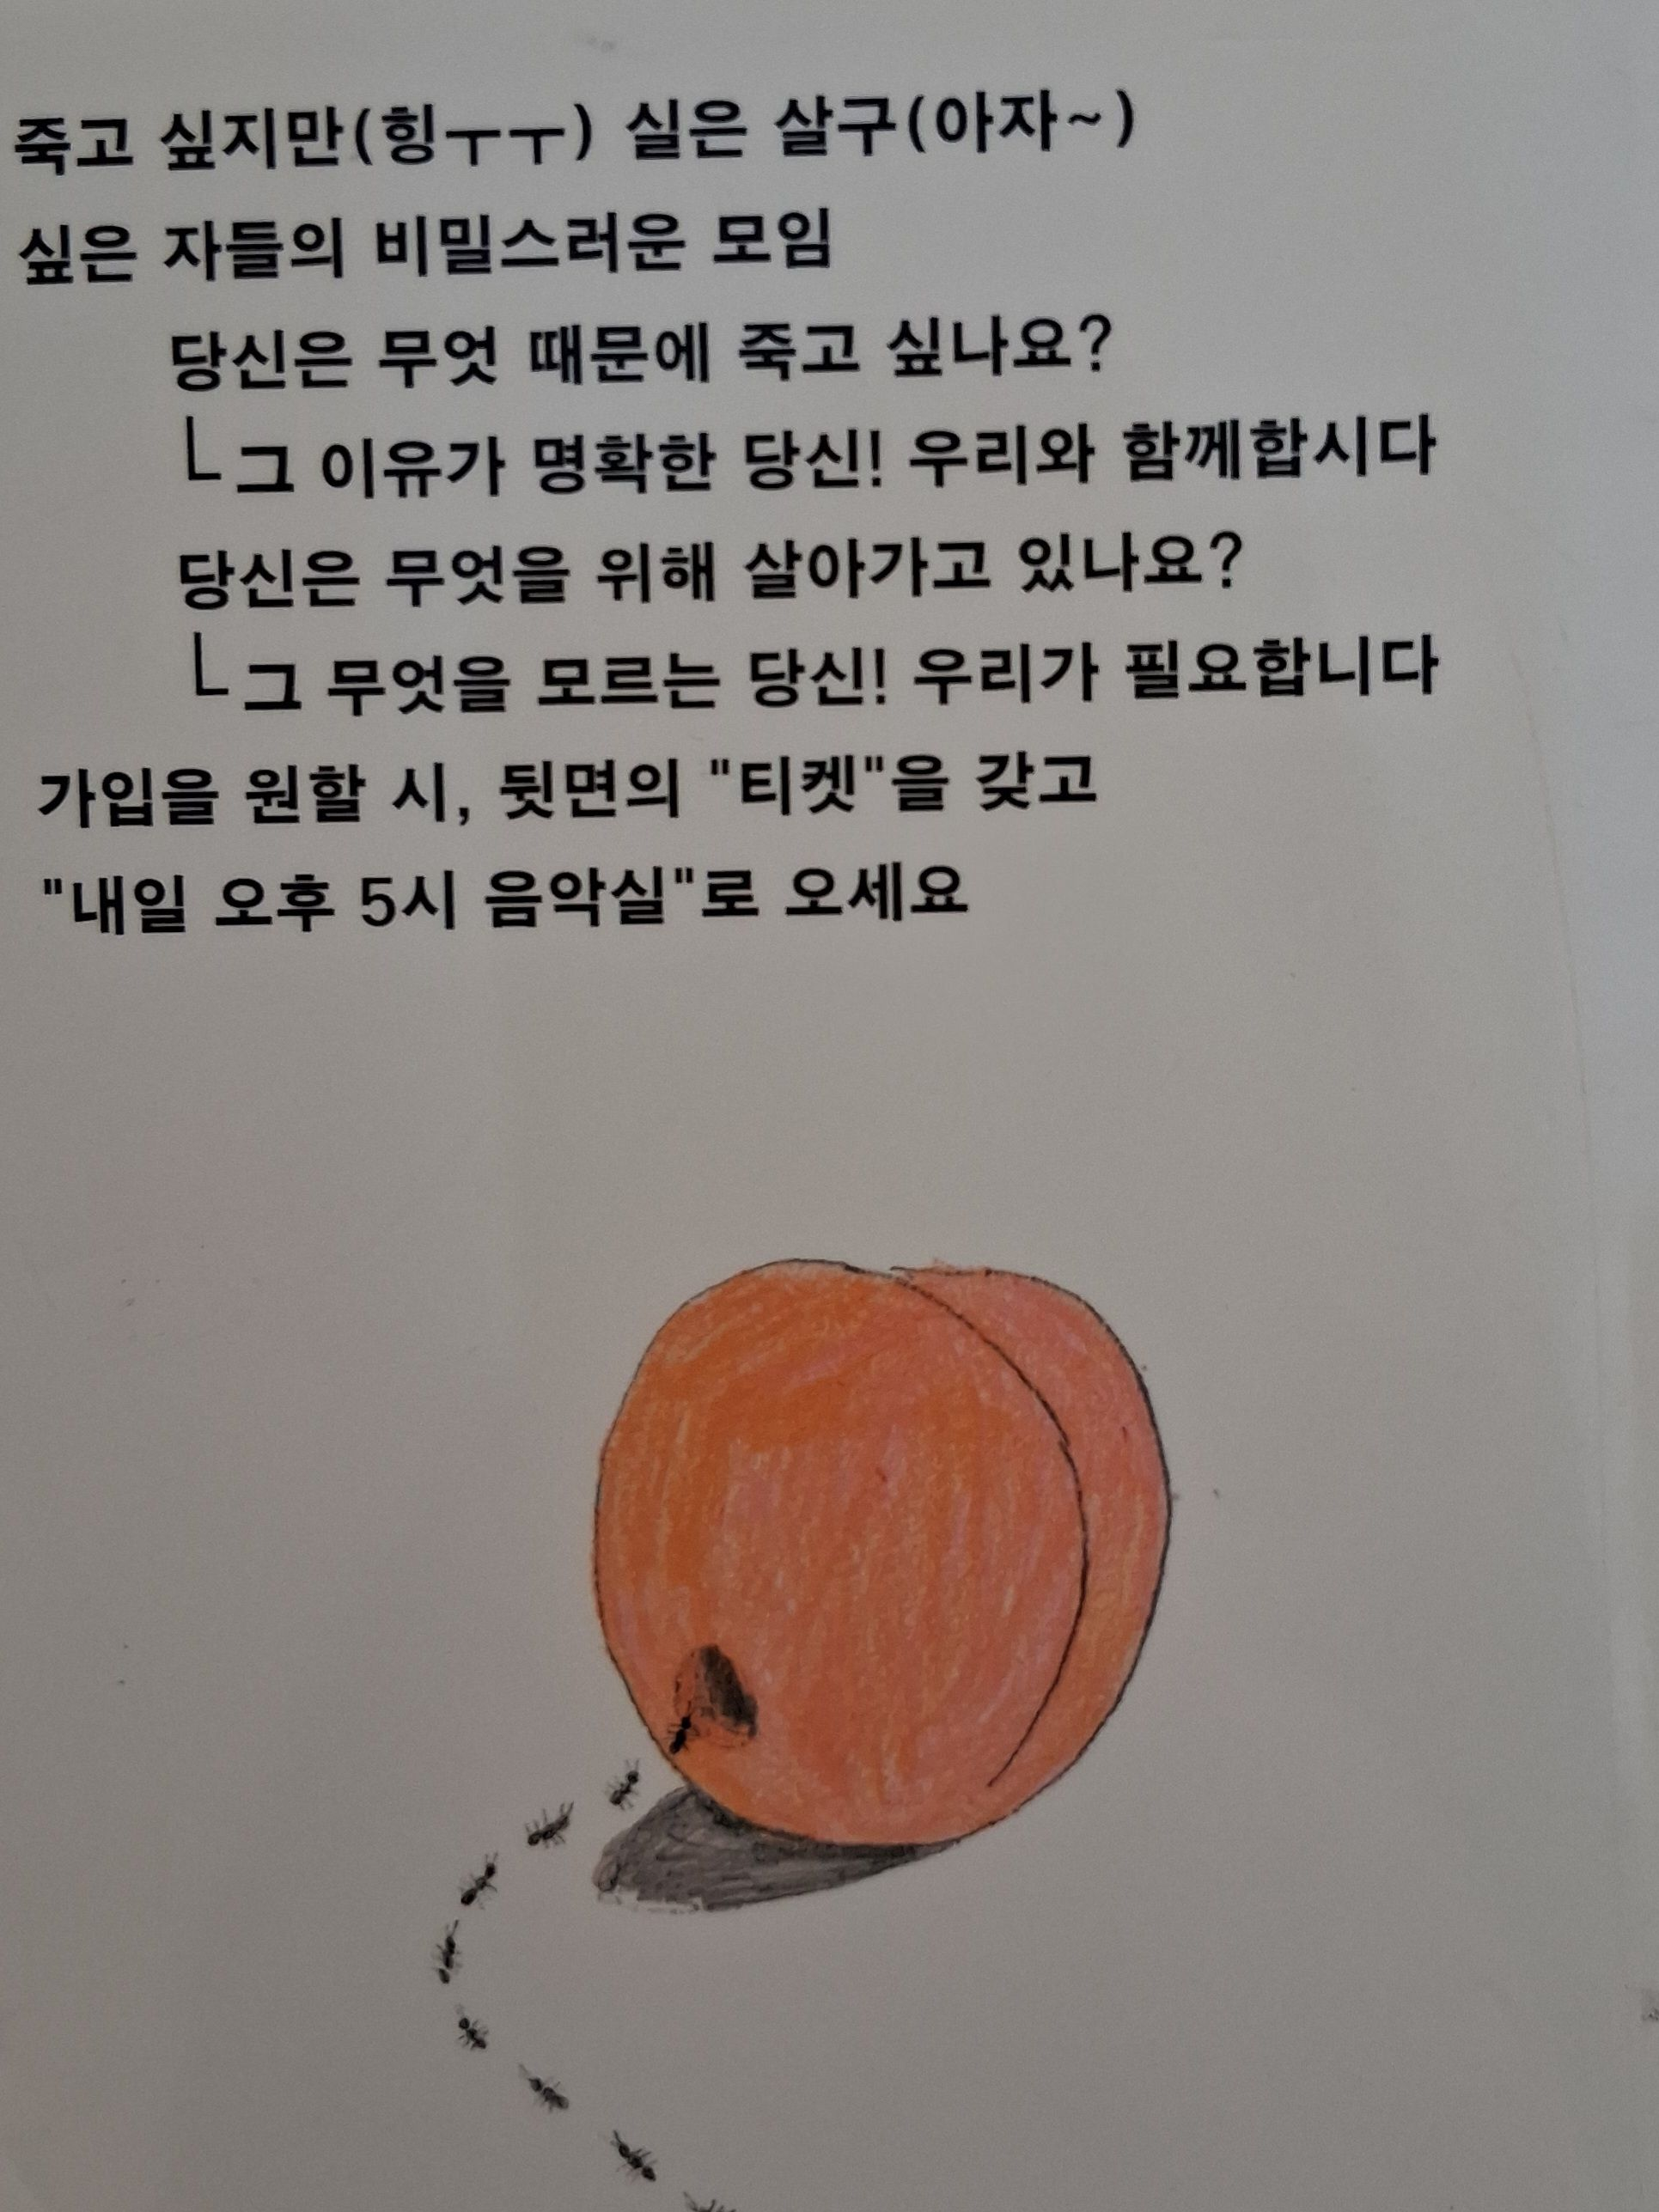 죽고 싶지만(힝ㅜㅜ) 실은 살구(아자~)
싶은 자들의 비밀스러운 모임
당신은 무엇 때문에 죽고 싶나요?
└그 이유가 명확한 당신! 우리와 함께합시다
당신은 무엇을 위해 살아가고 있나요?
└그 무엇을 모르는 당신! 우리가 필요합니다
가입을 원할 시, 뒷면의 "티켓"을 갖고
"내일 오후 5시 음악실"로 오세요